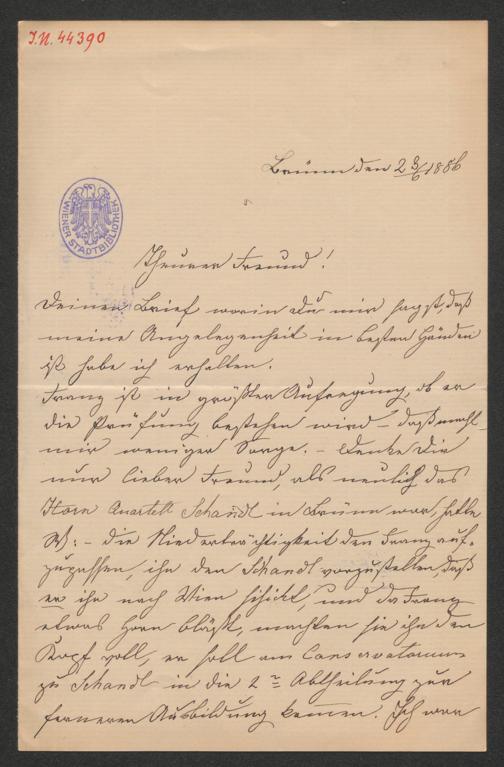 I.N. 44390
Brünn den 23/6 1886
WIENER STADTBIBLIOTHEK
Theurer Freund!
Deinen Brief worin Du mir sagst, daß
meine Angelegenheit in besten Händen
ist habe ich erhalten.
Franz ist in größter Aufregung, ob er
die Prüfung bestehen wird – daß macht
mir weniger Sorge. – Denke Dir
nur lieber Freund, als neulich das
Horn Quartett Schandl in Brünn war, hatte
W: – die Niederträchtigkeit den Franz auf-
zuhssen, ihn den Schandl vorzustellen, daß
er ihn nach Wien schickt, und da Franz
etwas Horn bläst, machten sie ihn den
Kopf voll, er soll am Conservatorium
zu Schandl in die 2te Abtheilung zur
ferneren Ausbildung kommen. Ich war